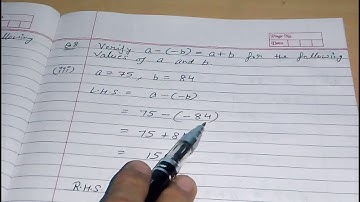 following
Q8 Verify a-(-b) = a+b for the following
values of a and b
(iii) a = 75, b = 84
L.H.S = a-(-b)
= 75 - (-84)
= 75 + 8
= 15
R.H.S